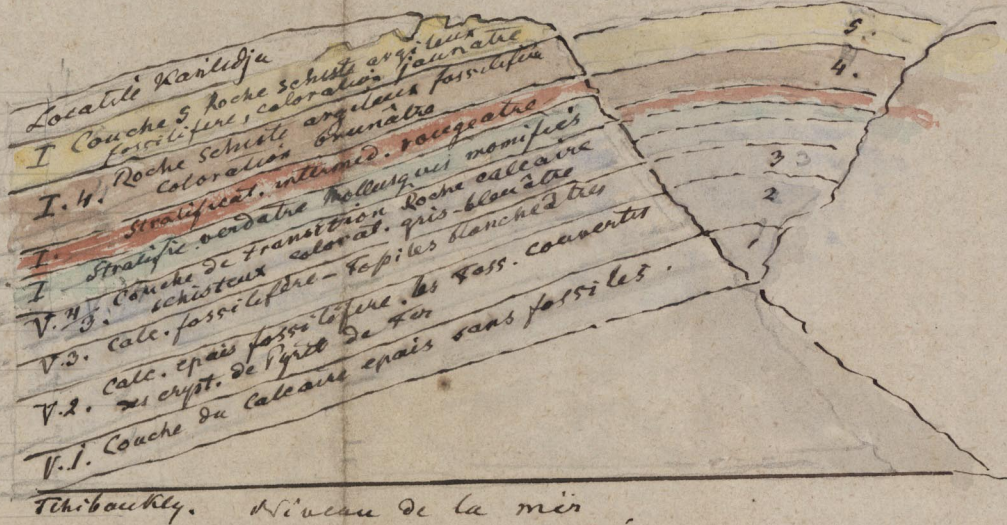 Localité Kanlidja
I Couche 5 Roche schiste argileux
fossilifère, coloration jaunatre
I. 4. Roche schiste argileux fossilifère
coloration brunâtre
I. Stratificat. intermed. rougeatre
I Stratific. verdatre Mollusques momifiés
V. 4 Couche de transition Roche calcaire
3. schisteux colorat. gris-bleuâtre
V. 3. calc. fossilifère - blancheâtres
V. 2. calc. epais fossilifère. les Foss. couverts
crypt. de Pyrit de Fer
V. 1. Couche du Calcaire epais sans fossiles.
5.
4.
3 3
2
1
Tchiboukly. Niveau de la mer